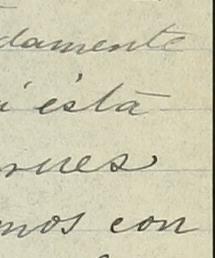 damente
í está
rnes
mos con